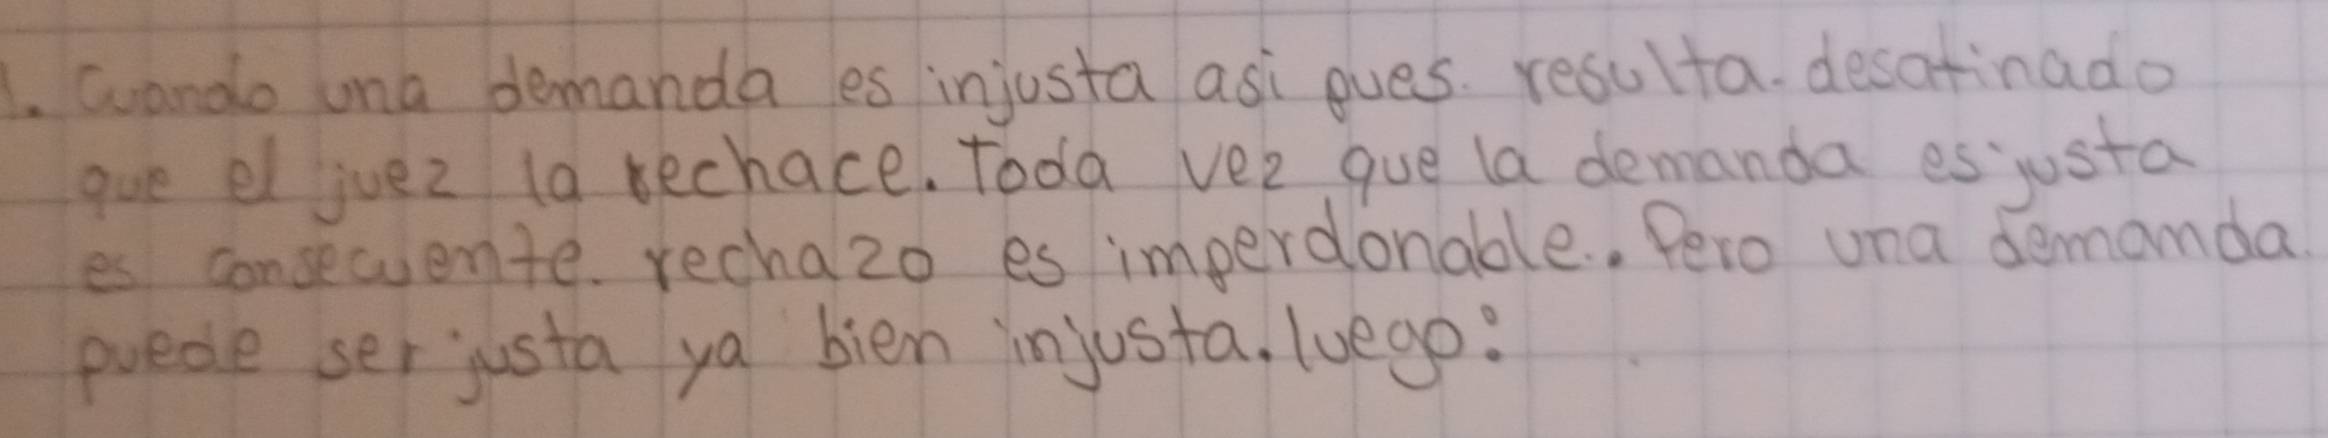 1. Cuando una demanda es injusta asi pues. resulta. desatinado
que el juez la rechace. Toda vez que la demanda es justa
es consecuente. rechazo es imperdonable.. Pero una demanda
puede ser justa ya bien injusta. luego: